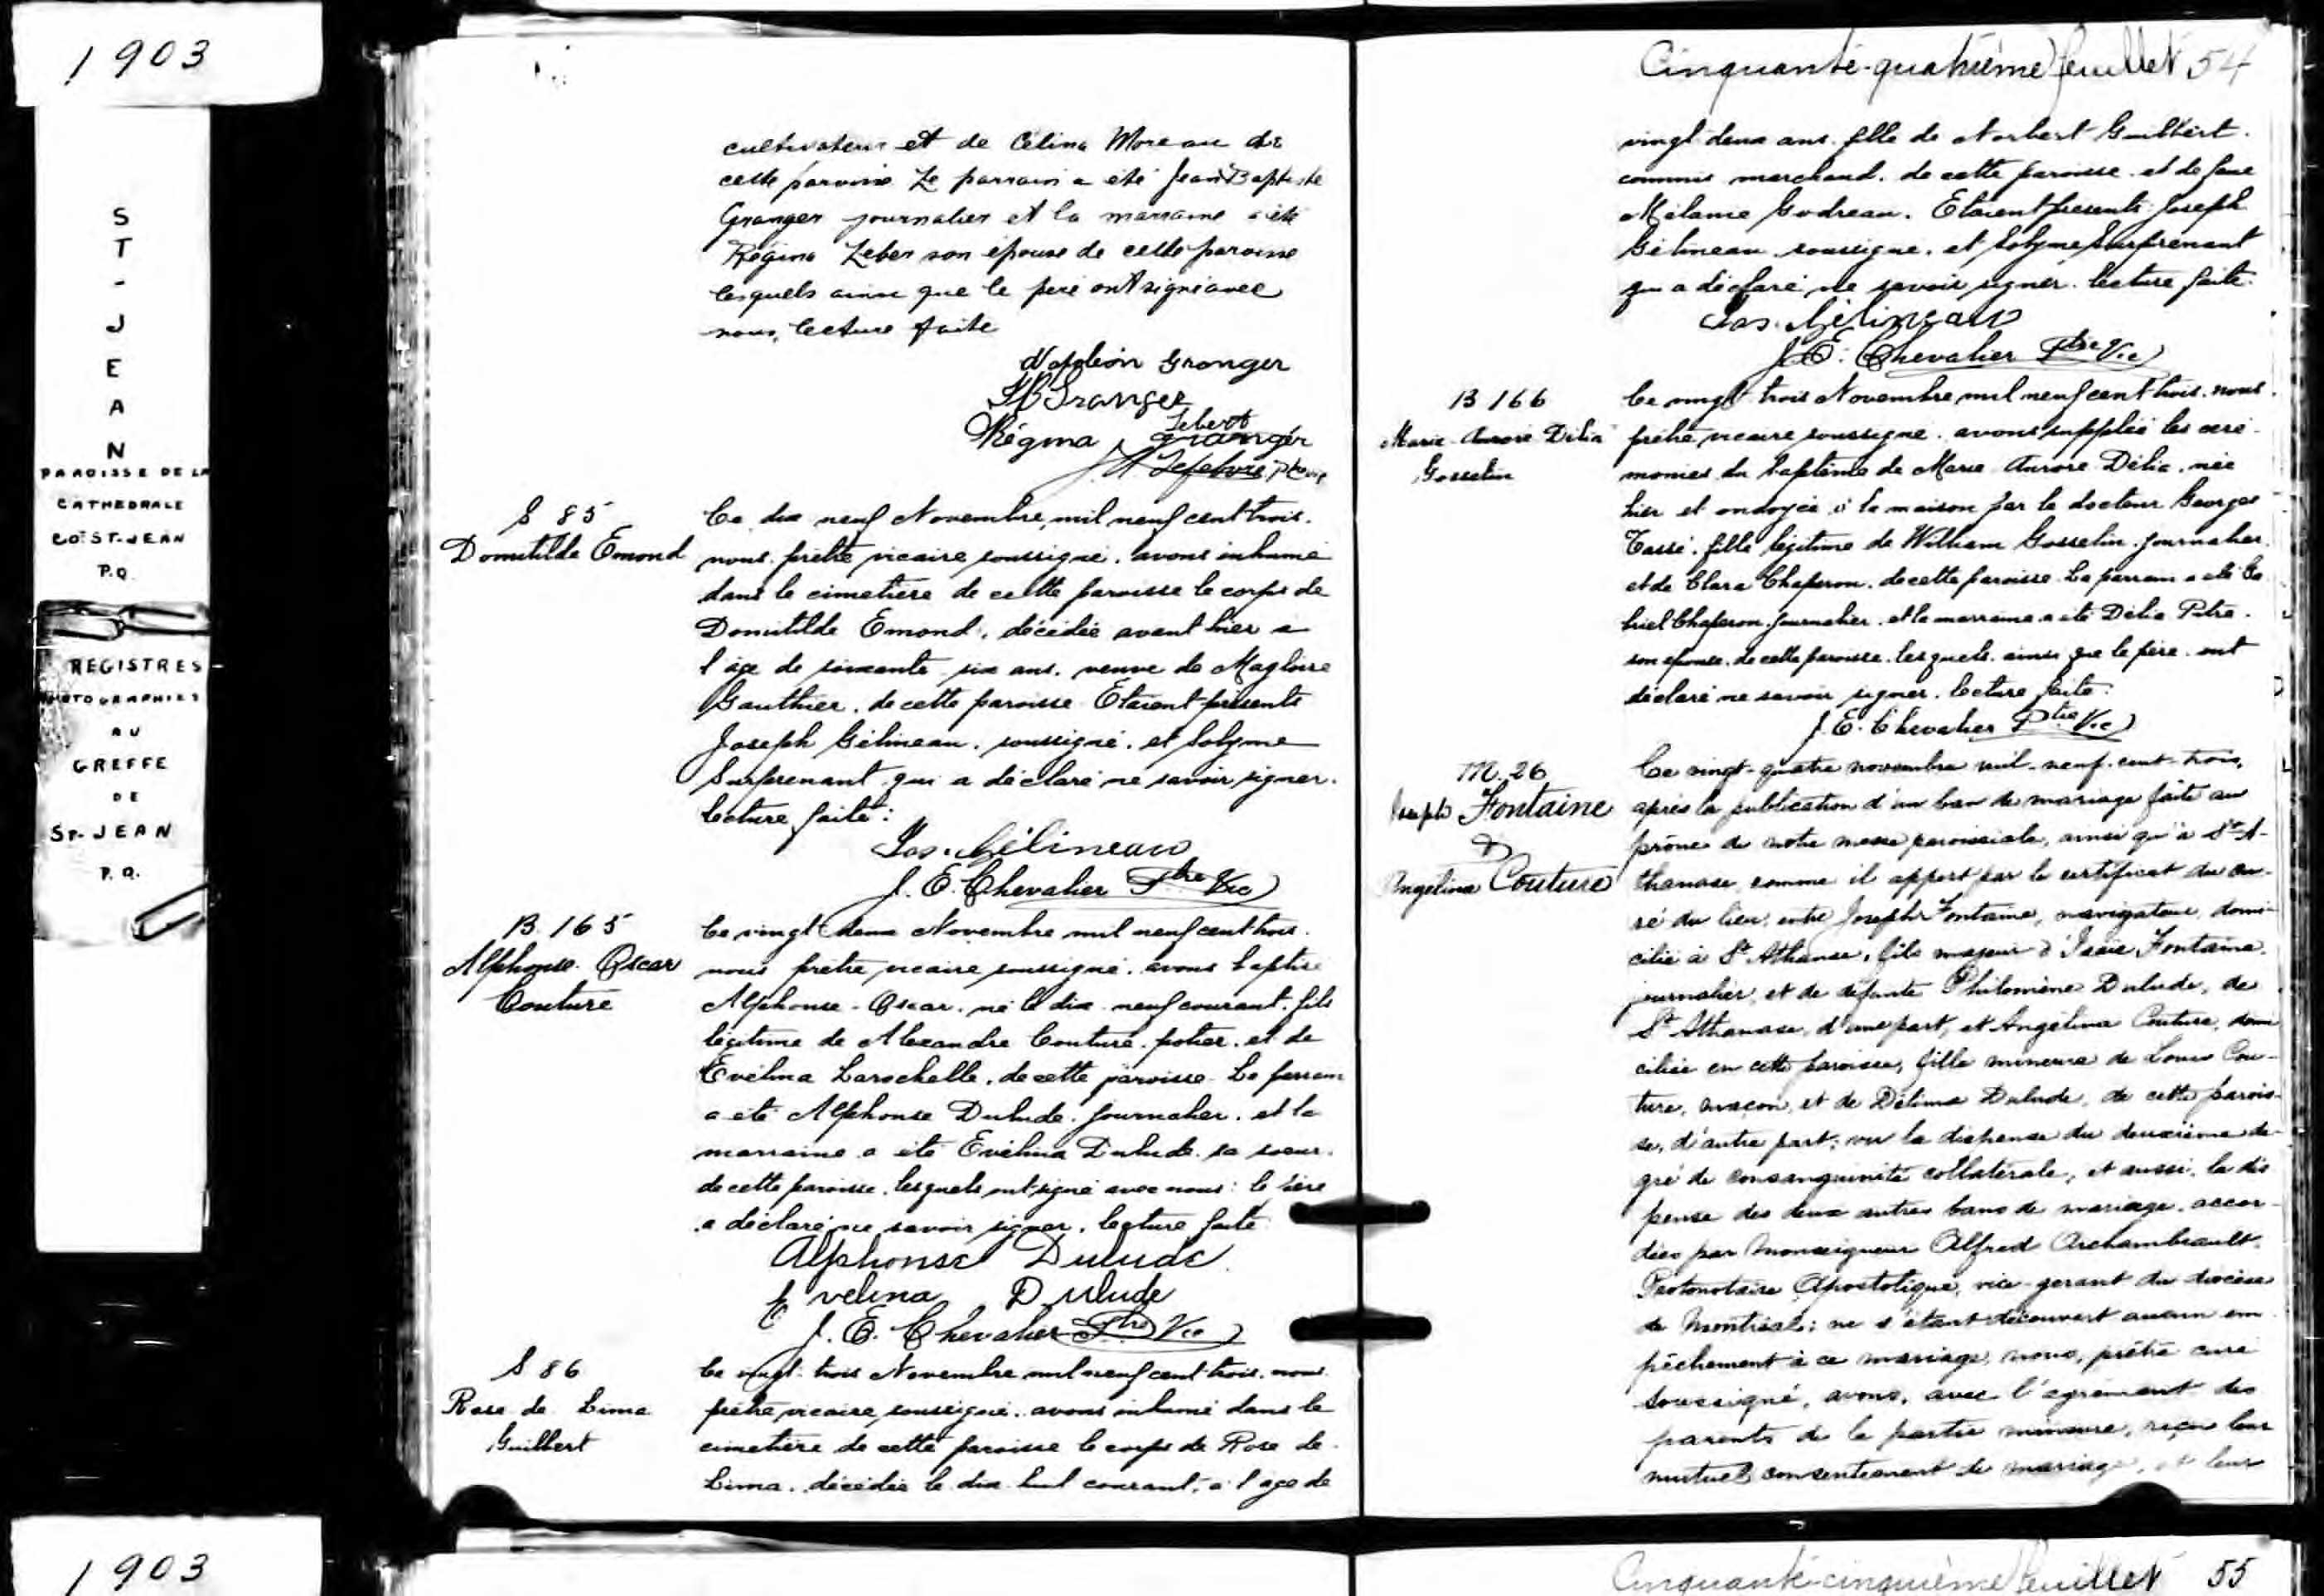 1903
S
T
-
J
E
A
N
PAROISSE DE LA
CATHEDRALE
CO ST-JEAN
P.Q.
REGISTRES
PHOTOGRAPHIES
AU
GREFFE
DE
ST-JEAN
P.Q.
1903
cultivateur et de Célina Moreau de
cette paroisse Le parrain a été Jean Baptiste
Granger journalier et la marraine a été
Régina Leber son épouse de cette paroisse
lesquels ainsi que le père ont signé avec
nous, lecture faite
Napoléon Granger
JB Granger
Lebert
Régina Granger
J A Lefebvre Ptre vic
S 85
Domitilde Emond
Ce dix neuf Novembre, mil neuf cent trois.
nous prêtre vicaire soussigné. avons inhumé
dans le cimetière de cette paroisse le corps de
Domitilde Emond, décédée avant hier a
l'âge de soixante six ans. veuve de Magloire
Gauthier. de cette paroisse Etaient présents
Joseph Gélineau. soussigné. et Solyme
Surprenant qui a déclaré ne savoir signer.
lecture faite:
Jos. Gélineau
J. E. Chevalier Ptre Vic
B. 165
Alphonse Oscar
Couture
Ce vingt deux Novembre mil neuf cent trois.
nous prêtre vicaire soussigné. avons baptisé
Alphonse-Oscar. né le dix-neuf courant. fils
légitime de Alexandre Couture. potier. et de
Evélina Larochelle, de cette paroisse. Le parrain
a été Alphonse Dulude. journalier. et la
marraine a été Evélina Dulude. sa soeur.
de cette paroisse. lesquels ont signé avec nous: le père
a déclaré ne savoir signer. lecture faite
Alphonse Dulude.
Evelina Dulude
J. E. Chevalier Ptre Vic
S 86
Rose de Lima
Guilbert
Ce vingt-trois Novembre mil neuf cent trois. nous
prêtre vicaire soussigné. avons inhumé dans le
cimetière de cette paroisse le corps de Rose de
Lima. décédée le dix huit courant, à l'age de
Cinquante-quatrième feuillet 54
vingt deux ans. fille de Norbert Guilbert.
commis marchand. de cette paroisse. et de feue
Mélanie Godreau. Etaient présents: Joseph
Gélineau soussigné. et Solyme Surprenant
qui a déclaré ne savoir signer. lecture faite.
Jos. Gélineau
J. E. Chevalier Ptre Vic
B 166
Marie Aurore Délia
Gosselin
Ce vingt trois Novembre mil neuf cent trois. nous.
prêtre vicaire soussigné. avons suppléé les céré-
monies du baptême de Marie Aurore Délia. née
hier et ondoyée à la maison par le docteur Georges
Tassé. fille légitime de William Gosselin. journalier.
et de Clara Chaperon. de cette paroisse. Le parrain a été Ga
briel Chaperon. journalier. et la marraine a été Délia Pitre.
son épouse. de cette paroisse. lesquels. ainsi que le père. ont
déclaré ne savoir signer. lecture faite:
J. E. Chevalier Ptre Vic
M. 26
Joseph Fontaine
&
Angélina Couture
Ce vingt-quatre novembre mil-neuf-cent-trois,
après la publication d'un ban de mariage faite au
prône de notre messe paroissiale, ainsi qu'à St A-
thanase, comme il appert par le certificat du cu-
ré du lieu, entre Joseph Fontaine, navigateur, domi-
cilié à St Athanase, fils majeur d'Isaïe Fontaine,
journalier, et de défunte Philomène Dulude, de
St Athanase, d'une part, et Angélina Couture, domi
ciliée en cette paroisse, fille mineure de Louis Cou-
ture, maçon, et de Délima Dulude, de cette parois-
se, d'autre part; vu la dispense du deuxième de-
gré de consanguinité collatérale, et aussi, la dis
pense des deux autres bans de mariage, accor-
dées par Monseigneur Alfred Archambeault,
Protonotaire Apostolique, vice-gérant du diocèse
de Montréal; ne s'étant découvert aucun em
pêchement à ce mariage, nous, prêtre curé
soussigné, avons, avec l'agrément des
parents de la partie mineure, reçu leur
mutuel consentement de mariage, et leur
Cinquante-cinquième feuillet 55